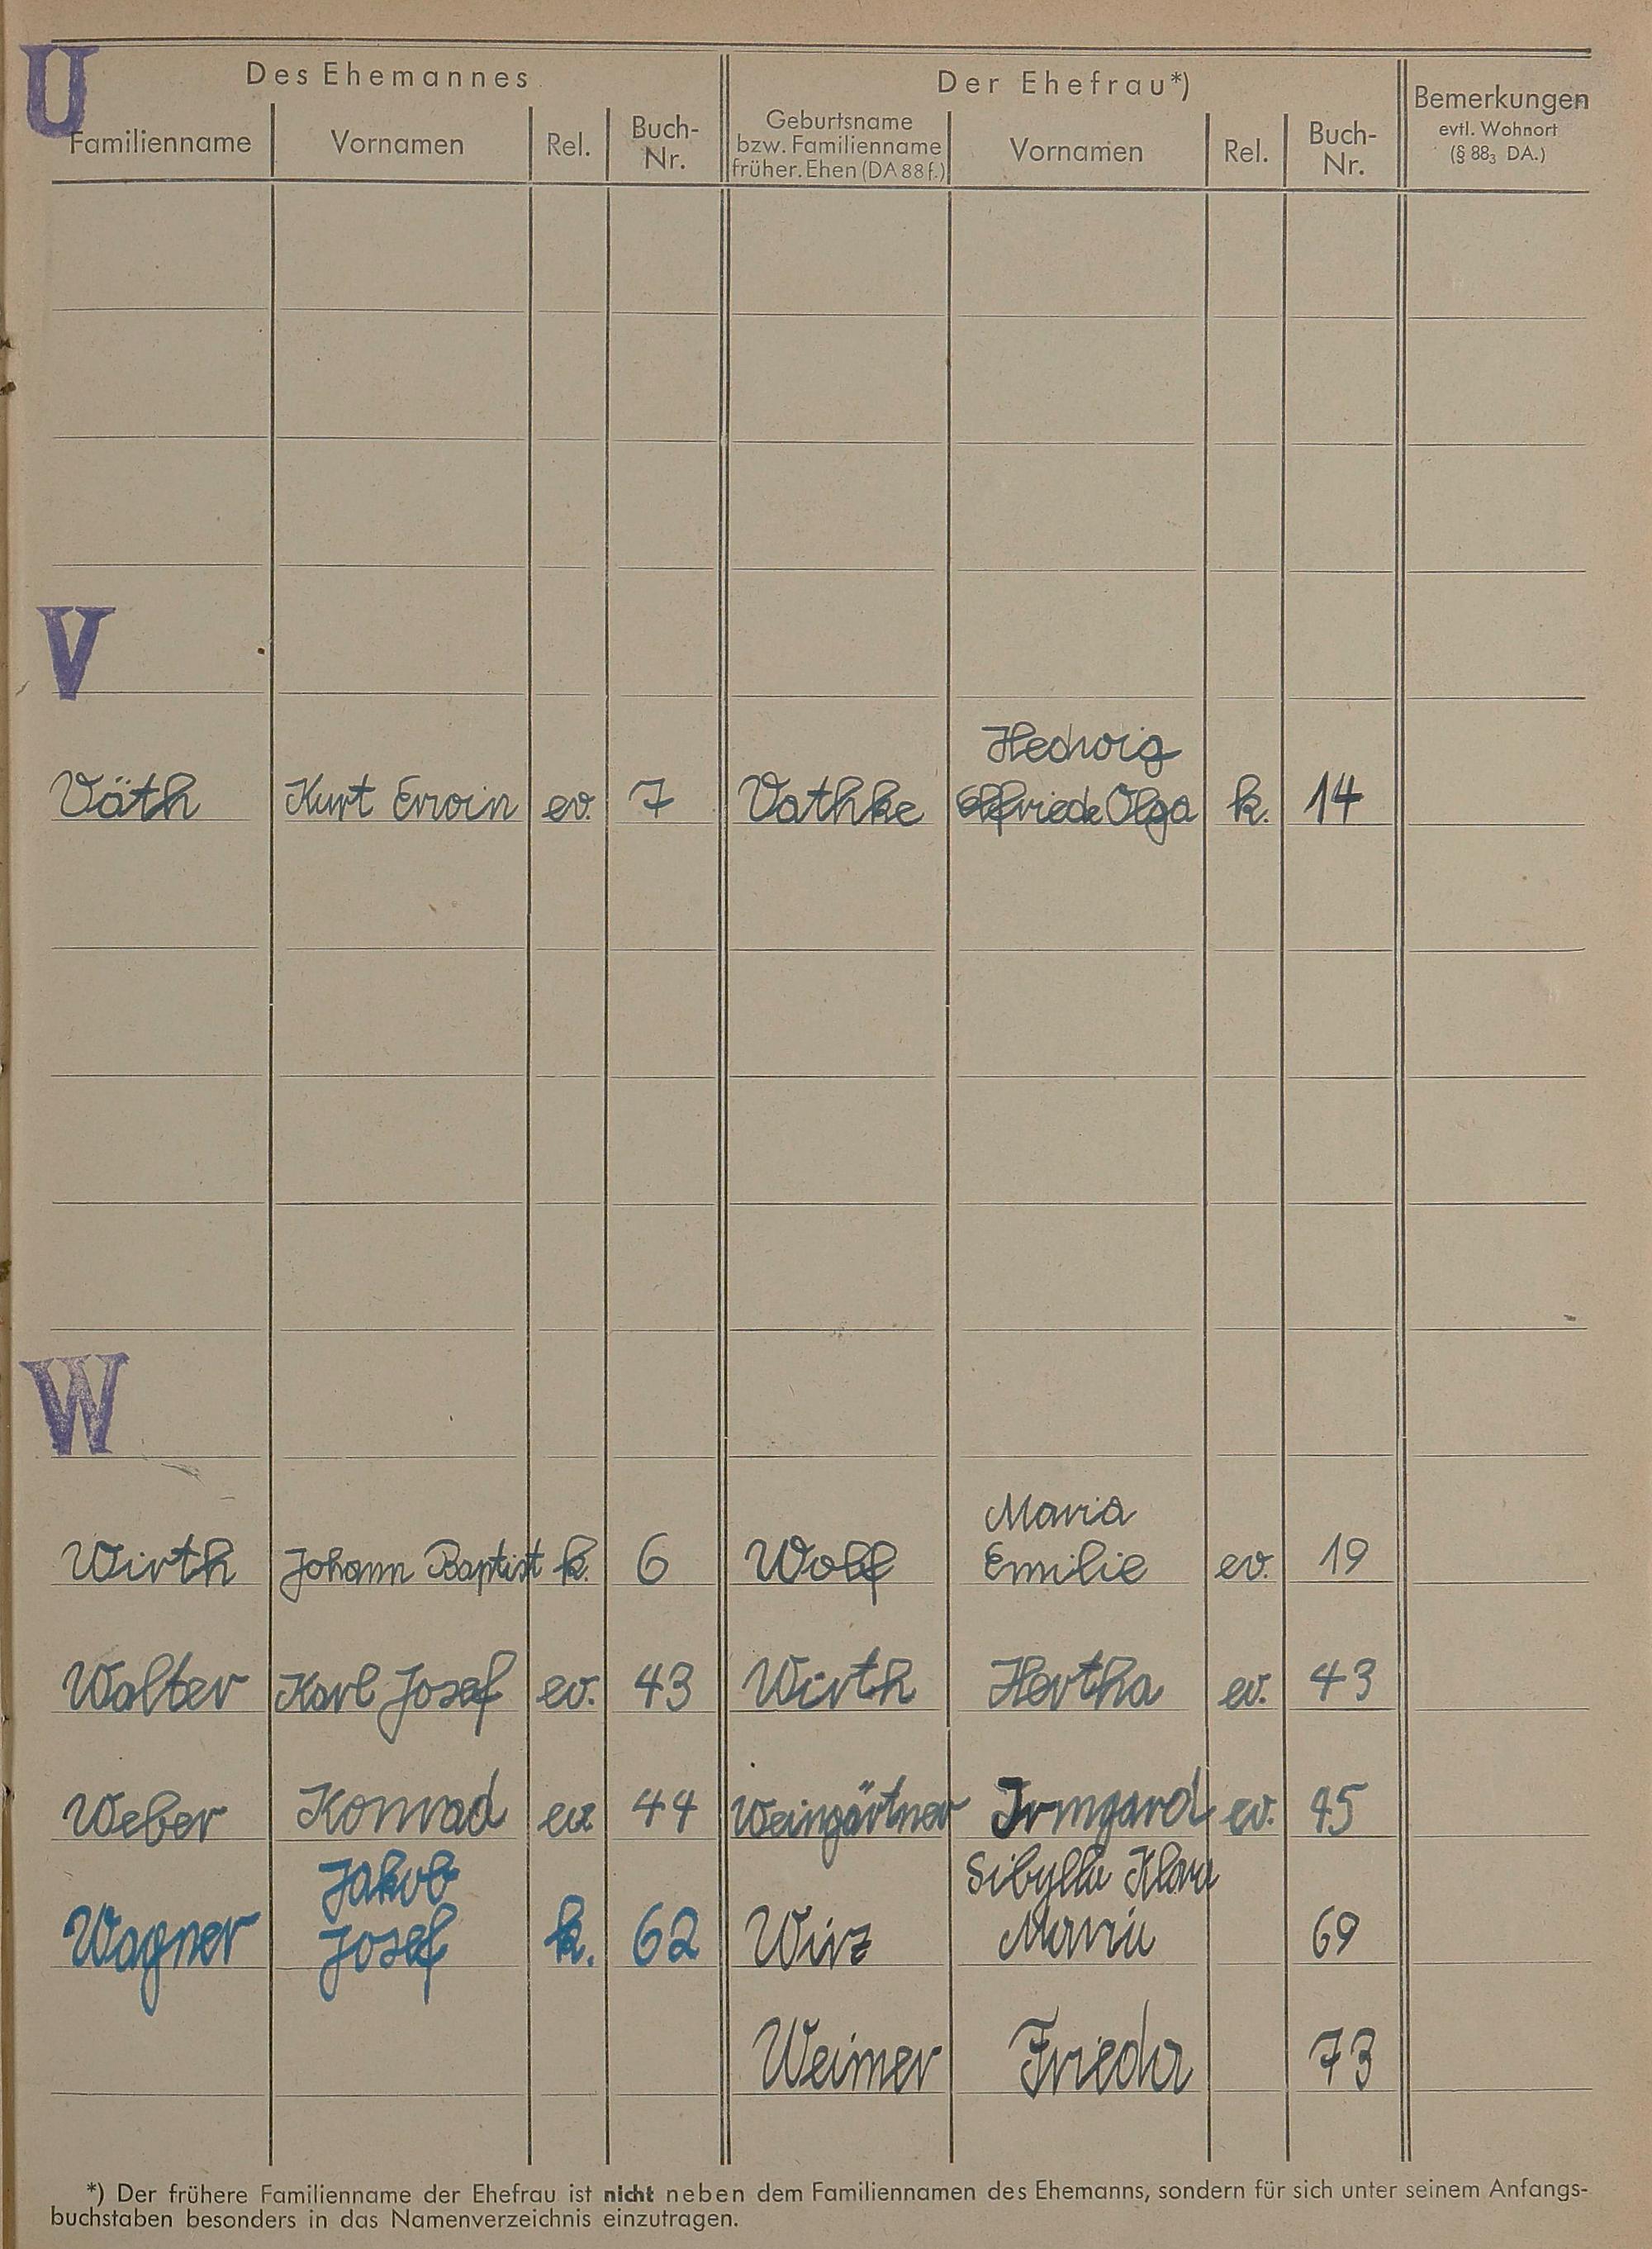 U
Des Ehemannes Der Ehefrau*) Bemerkungen
evtl. Wohnort
(§ 88₃ DA.)
Familienname Vornamen Rel. Buch-Nr. Geburtsname bzw. Familienname früher. Ehen (DA 88 f.) Vornamen Rel. Buch-Nr.
V
Hedwig
Väth Kurt Erwin ev. 7 Vathke Elfriede Olga k. 14
W
Maria
Wirth Johann Baptist k. 6 Wolf Emilie ev. 19
Walter Karl Josef ev. 43 Wirth Hertha ev. 43
Weber Konrad ev. 44 Weingärtner Irmgard ev. 45
Jakob Sibylla Klara
Wagner Josef k. 62 Wirz Maria 69
Weimer Frieda 73
*) Der frühere Familienname der Ehefrau ist nicht neben dem Familiennamen des Ehemanns, sondern für sich unter seinem Anfangs-
buchstaben besonders in das Namenverzeichnis einzutragen.